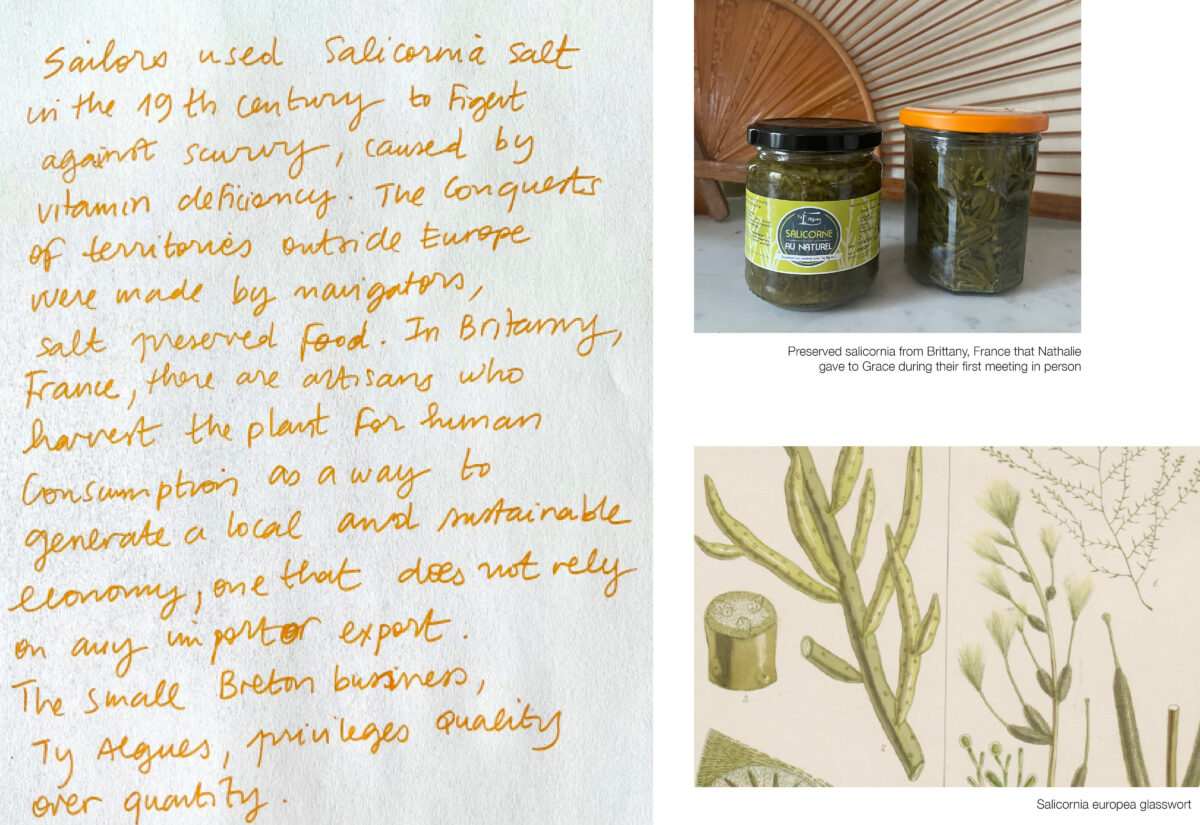 Sailors used Salicornia salt
in the 19th century to Figert
against scurvy, caused by
vitamin deficiency. The Conquests
of territories outside Europe
were made by navigators,
salt preserved food. In Britanny,
France, there are artisans who
harvest the plant For human
Consumption as a way to
generate a local and sustainable
economy, one that does not rely
on any import or export.
The small Breton business,
Ty Algues, privileges quality
over quantity.
Ty Algues
SALICORNE
AU NATUREL
Preserved salicornia from Brittany, France that Nathalie
gave to Grace during their first meeting in person
Salicornia europea glasswort